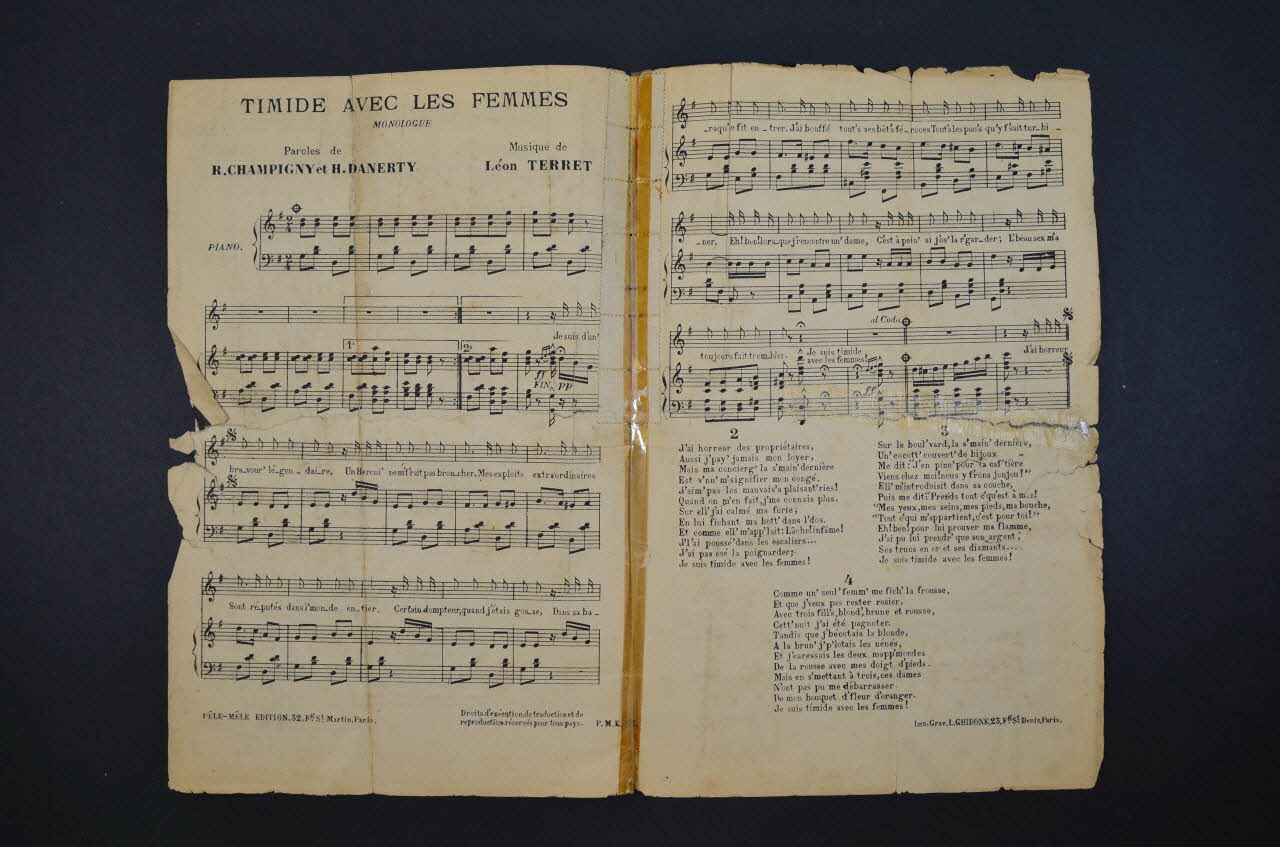 TIMIDE AVEC LES FEMMES
MONOLOGUE
Paroles de
R. CHAMPIGNY et H. DANERTY
Musique de
Léon TERRET
PIANO.
1ª 2ª
Je suis d'un'
ff
FIN. pp
bra_vour' lé_gen_dai_re, Un Hercul' ne m'f'rait pas bron_cher. Mes exploits extraordinaires
Sont ré_putés dans l'mon_de en_tier. Certain dompteur, quand j'étais gos_se, Dans sa ba_
PÊLE-MÊLE EDITION, 32, Fg St Martin, Paris.
Droits d'exécution, de traduction et de
reproduction réservés pour tous pays.
P. M. E.
_raqu' me fit en_trer. J'ai bouffé tout's ses bêt's fé_roces Tout's les puc's qu'y f'sait tur_bi_
_ner. Eh! ben! lors_que j'rencontre un' dame, C'est à pein' si j'os' la r'gar_der; L'beau sex' m'a
al Coda
toujours fait trem_bler. Je suis timide
avec les femmes! J'ai horreur
ff
2
J'ai horreur des propriétaires,
Aussi j'pay' jamais mon loyer,
Mais ma concierg' la s'main' dernière
Est v'nu' m'signifier mon congé.
J'aim' pas les mauvais's plaisant'ries!
Quand on m'en fait, j'me connais plus.
Sur ell' j'ai calmé ma furie;
En lui fichant ma bott' dans l'dos.
Et comme ell' m'app'lait: Lâche! infâme!
J'l'ai poussé' dans les escaliers...
J'ai pas osé la poignarder;
Je suis timide avec les femmes!
3
Sur le boul'vard, la s'main' dernière,
Un' cocott' couvert' de bijoux
Me dit: J'en pinc' pour ta caf'tière
Viens chez moi! nous y f'rons joujou!"
Ell' m'introduisit dans sa couche,
Puis me dit: Prends tout c'qu'est à moi!
"Mes yeux, mes seins, mes pieds, ma bouche,
"Tout c'qui m'appartient, c'est pour toi!"
Eh! ben! pour lui prouver ma flamme,
J'ai pu lui prendr' que son argent,
Ses trucs en or et ses diamants....
Je suis timide avec les femmes!
4
Comme un' seul' femm' me fich' la frousse,
Et que j'veux pas rester rosier,
Avec trois fill's, blond', brune et rousse,
Cett' nuit j'ai été pagnoter.
Tandis que j'bécotais la blonde,
A la brun' j'p'lotais les nénés,
Et j'caressais les deux mapp'mondes
De la rousse avec mes doigt d'pieds.
Mais en s'mettant à trois, ces dames
N'ont pas pu me débarrasser
De mon bouquet d'fleur d'oranger.
Je suis timide avec les femmes!
Imp. Grav. L. GHIDONE, 23, Fg St Denis, Paris.